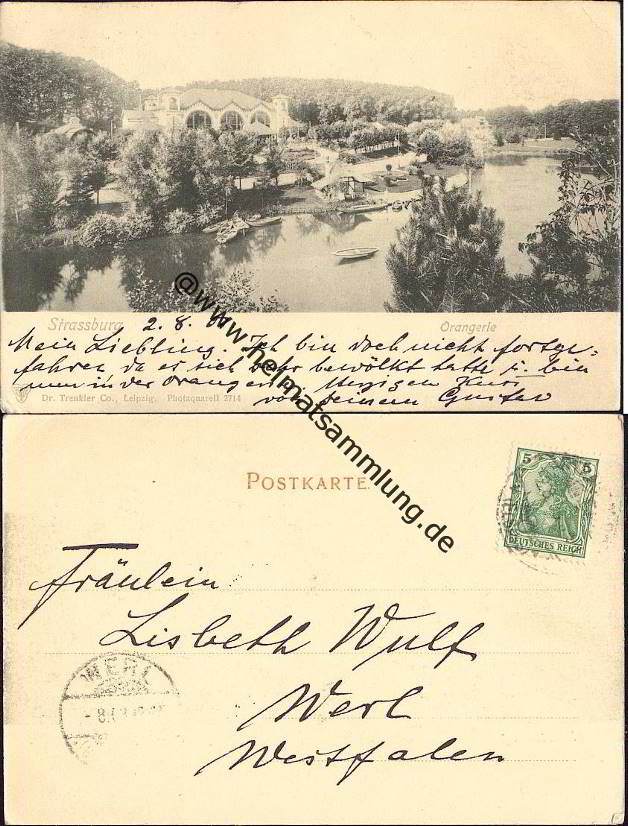 Strassburg 2. 8.
Orangerie
Mein Liebling. Ich bin doch nicht fortge-
fahren, da es sich sehr bewölkt hatte u. bin
nun in der Orangerie. Kuss
von Deinem Gustav
Dr. Trenkler Co., Leipzig. Photaquarell 2714
@www.heimatsammlung.de
POSTKARTE
5 5
DEUTSCHES REICH
Fräulein
Lisbeth Wulf
Werl
Westfalen
WERL